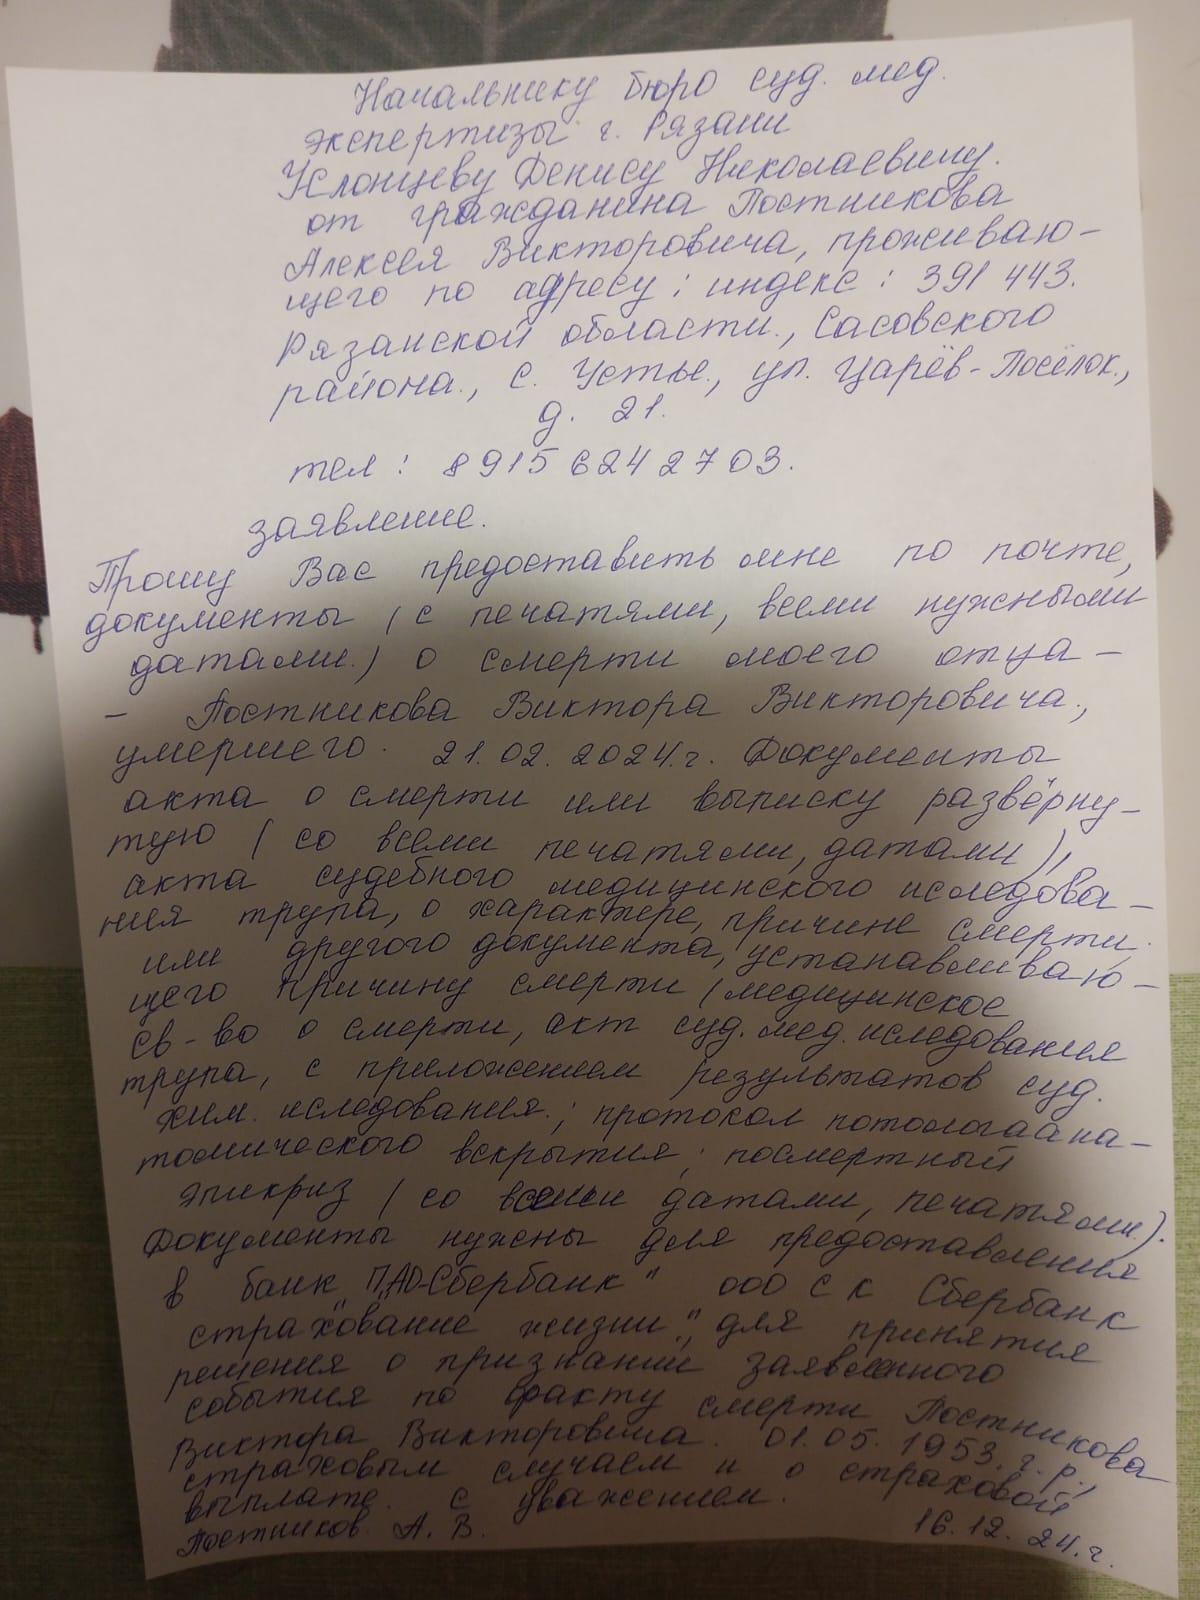 Начальнику бюро суд. мед.
экспертизы г. Рязани
Услонцеву Денису Николаевичу.
от гражданина Постникова
Алексея Викторовича, проживаю-
щего по адресу: индекс: 391 443.
Рязанской области., Сасовского
района., с. Устье., ул. Царёв-Посёлок.,
д. 21.
тел: 89156242703.
заявление.
Прошу Вас предоставить мне по почте,
документы (с печатями, всеми нужными
датами.) о смерти моего отца -
- Постникова Виктора Викторовича.,
умершего. 21.02.2024.г. Документы
акта о смерти или выписку развёрну-
тую (со всеми печатями, датами),
акта судебного медицинского иследова-
ния трупа, о характере, причине смерти.
или другого документа, устанавливаю-
щего причину смерти (медицинское
св-во о смерти, акт суд. мед. иследования
трупа, с приложением результатов суд.
хим. иследования.; протокол потологаана-
томического вскрытия; посмертный
эпикриз (со всеми датами, печатями.).
Документы нужны для предоставления
в банк "ПАО-Сбербанк" ООО С К Сбербанк
страхование жизни.", для принятия
решения о признании заявленного
события по факту смерти Постникова
Виктора Викторовича. 01.05.1953.г.р.,
страховым случаем и о страховой
выплате. с уважением.
Постников. А. В.
16.12.24.г.